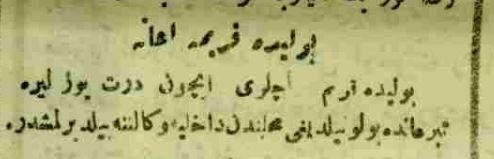 بولیده قریمه اعانه
بولیده قریم آچلری ایچون درت یوز لیره
تبرعانده بولونیلدیغی محلندن داخلیه وکالتنه بیلدیرلمشدر.